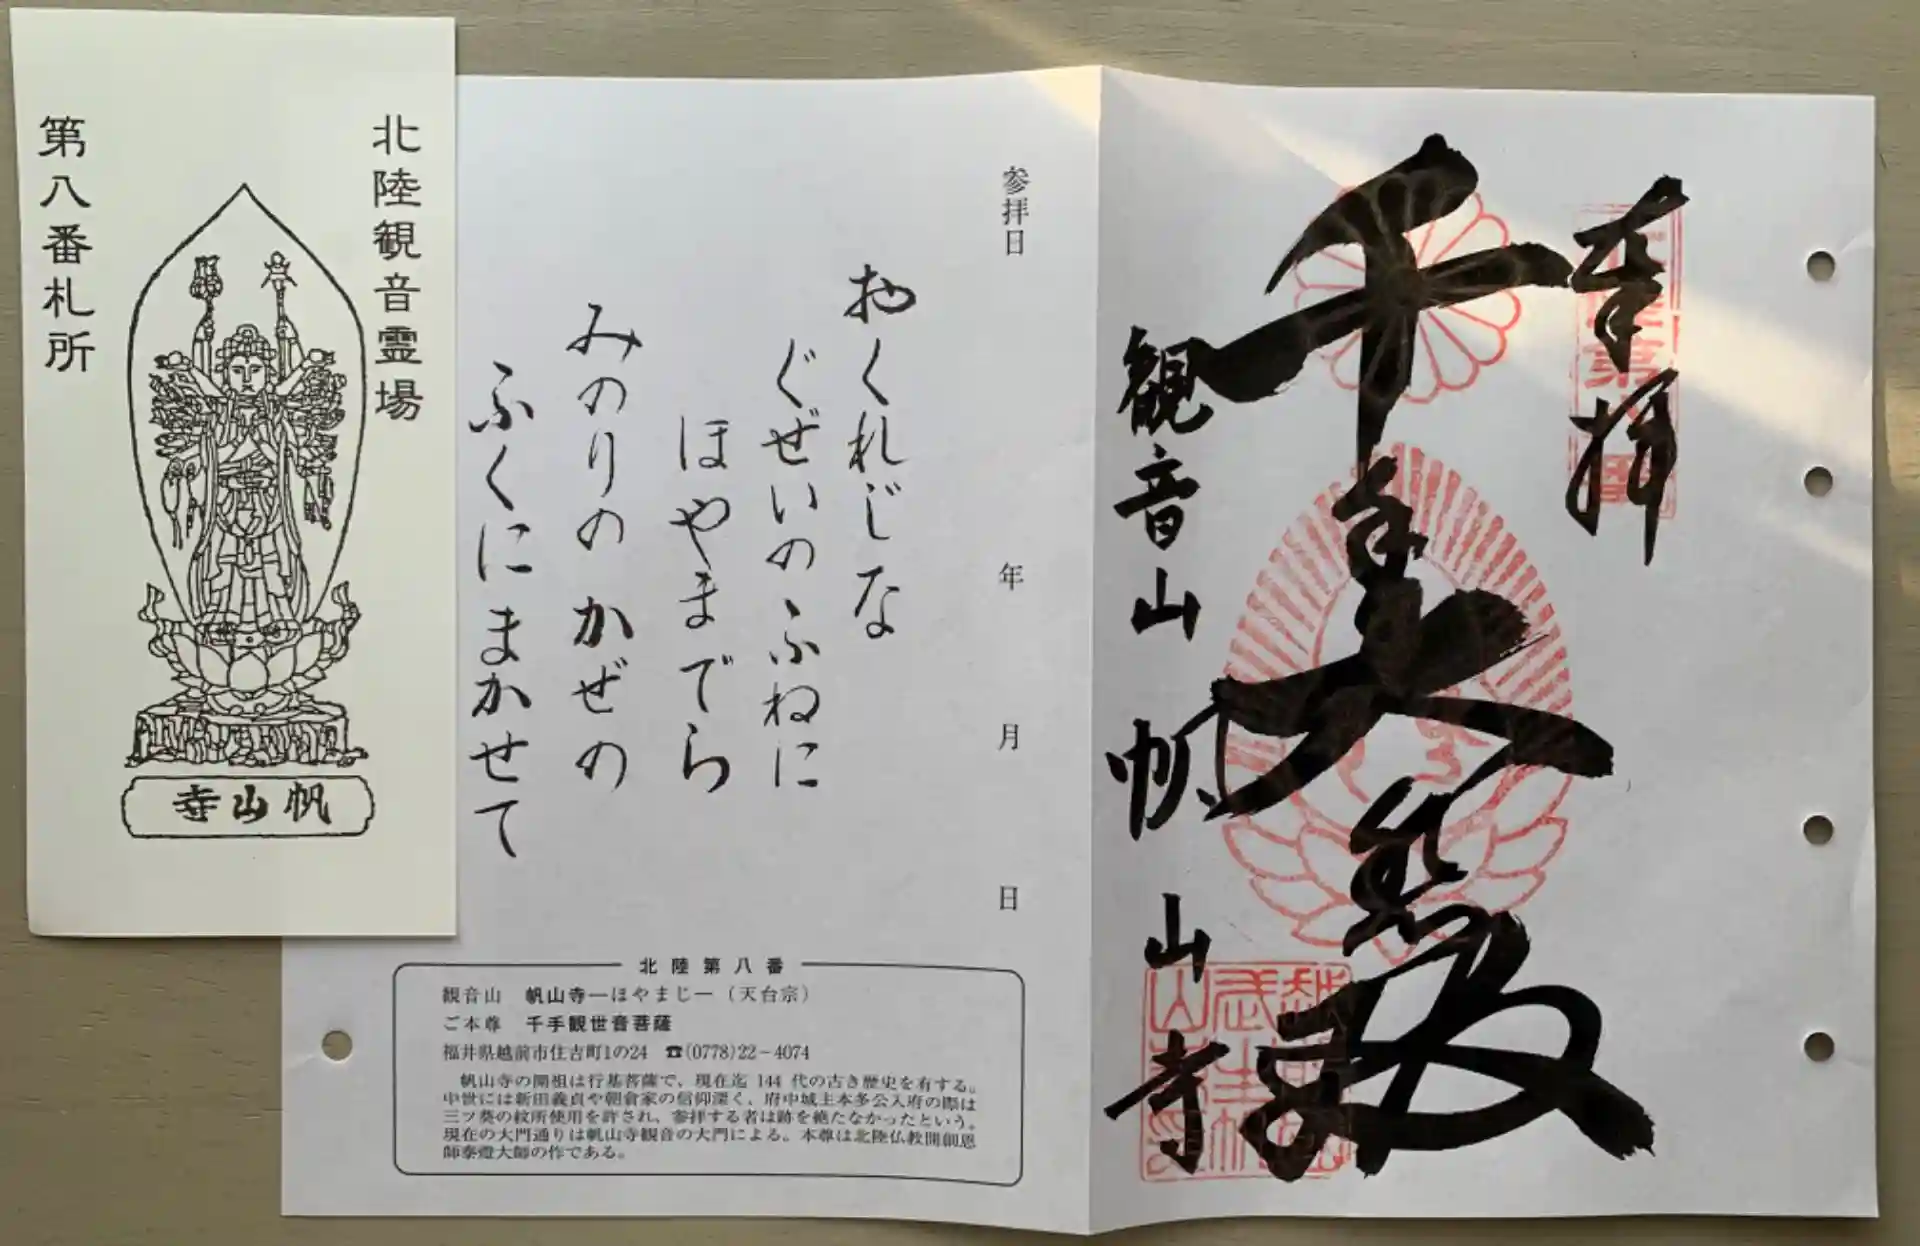 北陸観音霊場
第八番札所
帆山寺
奉拝
千手大悲殿
観音山 帆山寺
参拝日 年 月 日
おくれじな
ぐぜいのふねに
ほやまでら
みのりのかぜの
ふくにまかせて
北陸第八番
観音山 帆山寺―ほやまじ―（天台宗）
ご本尊 千手観世音菩薩
福井県越前市住吉町1の24 ☎(0778)22－4074
帆山寺の開祖は行基菩薩で、現在迄 144 代の古き歴史を有する。
中世には新田義貞や朝倉家の信仰深く、府中城主本多公入府の際は
三ツ葵の紋所使用を許され、参拝する者は跡を絶たなかったという。
現在の大門通りは帆山寺観音の大門による。本尊は北陸仏教開創恩
師泰澄大師の作である。